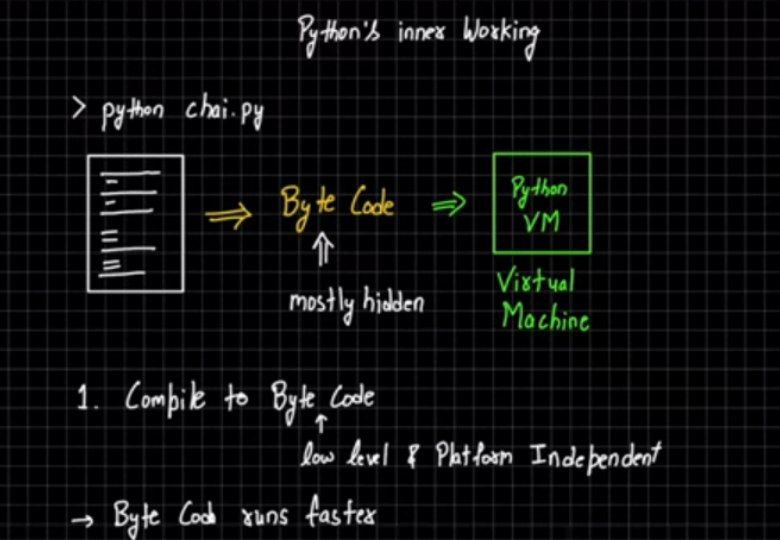 Python's inner Working
> python chai.py
⇒ Byte Code ⇒
Python
VM
mostly hidden
Virtual
Machine
1. Compile to Byte Code
low level & Platform Independent
→ Byte Code runs faster